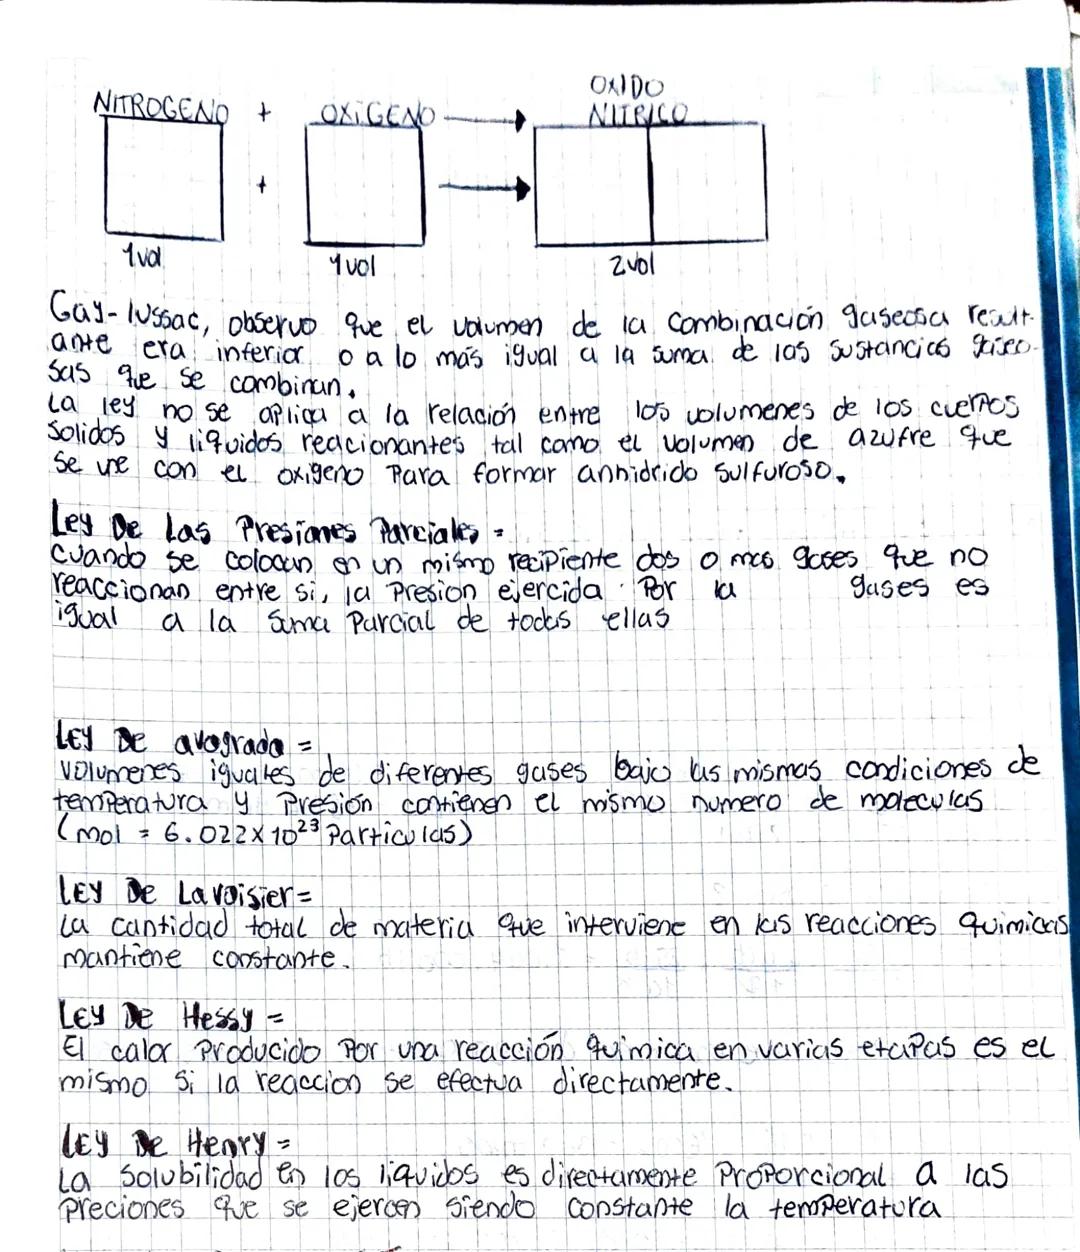 OXIDO
NITROGENO + OXIGENO NITRICO
+
1vol 1vol 2vol
Gay-lussac, observo que el volumen de la combinación gaseosa result-
ante era inferior o a lo más igual a la suma de las sustancias gaseo-
sas que se combinan.
La ley no se aplica a la relación entre los volumenes de los cuerpos
solidos y liquidos reacionantes tal como el volumen de azufre que
se une con el oxigeno para formar anhidrido sulfuroso.
Ley De Las Presiones Parciales =
cuando se colocan en un mismo recipiente dos o mas gases que no
reaccionan entre si, la presion ejercida Por la gases es
igual a la suma Parcial de todas ellas
LEY De avogrado =
volumenes iguales de diferentes gases bajo las mismas condiciones de
temperatura y Presión contienen el mismo numero de moleculas
(mol = 6.022x10²³ Particulas)
LEY De Lavoisier=
La cantidad total de materia que interviene en las reacciones quimicas
mantiene constante.
LEY De Hessy =
El calor Producido Por una reacción quimica en varias etapas es el
mismo si la reaccion se efectua directamente.
LEY De Henry =
La solubilidad en los liquidos es directamente Proporcional a las
preciones que se ejercen siendo constante la temperatura